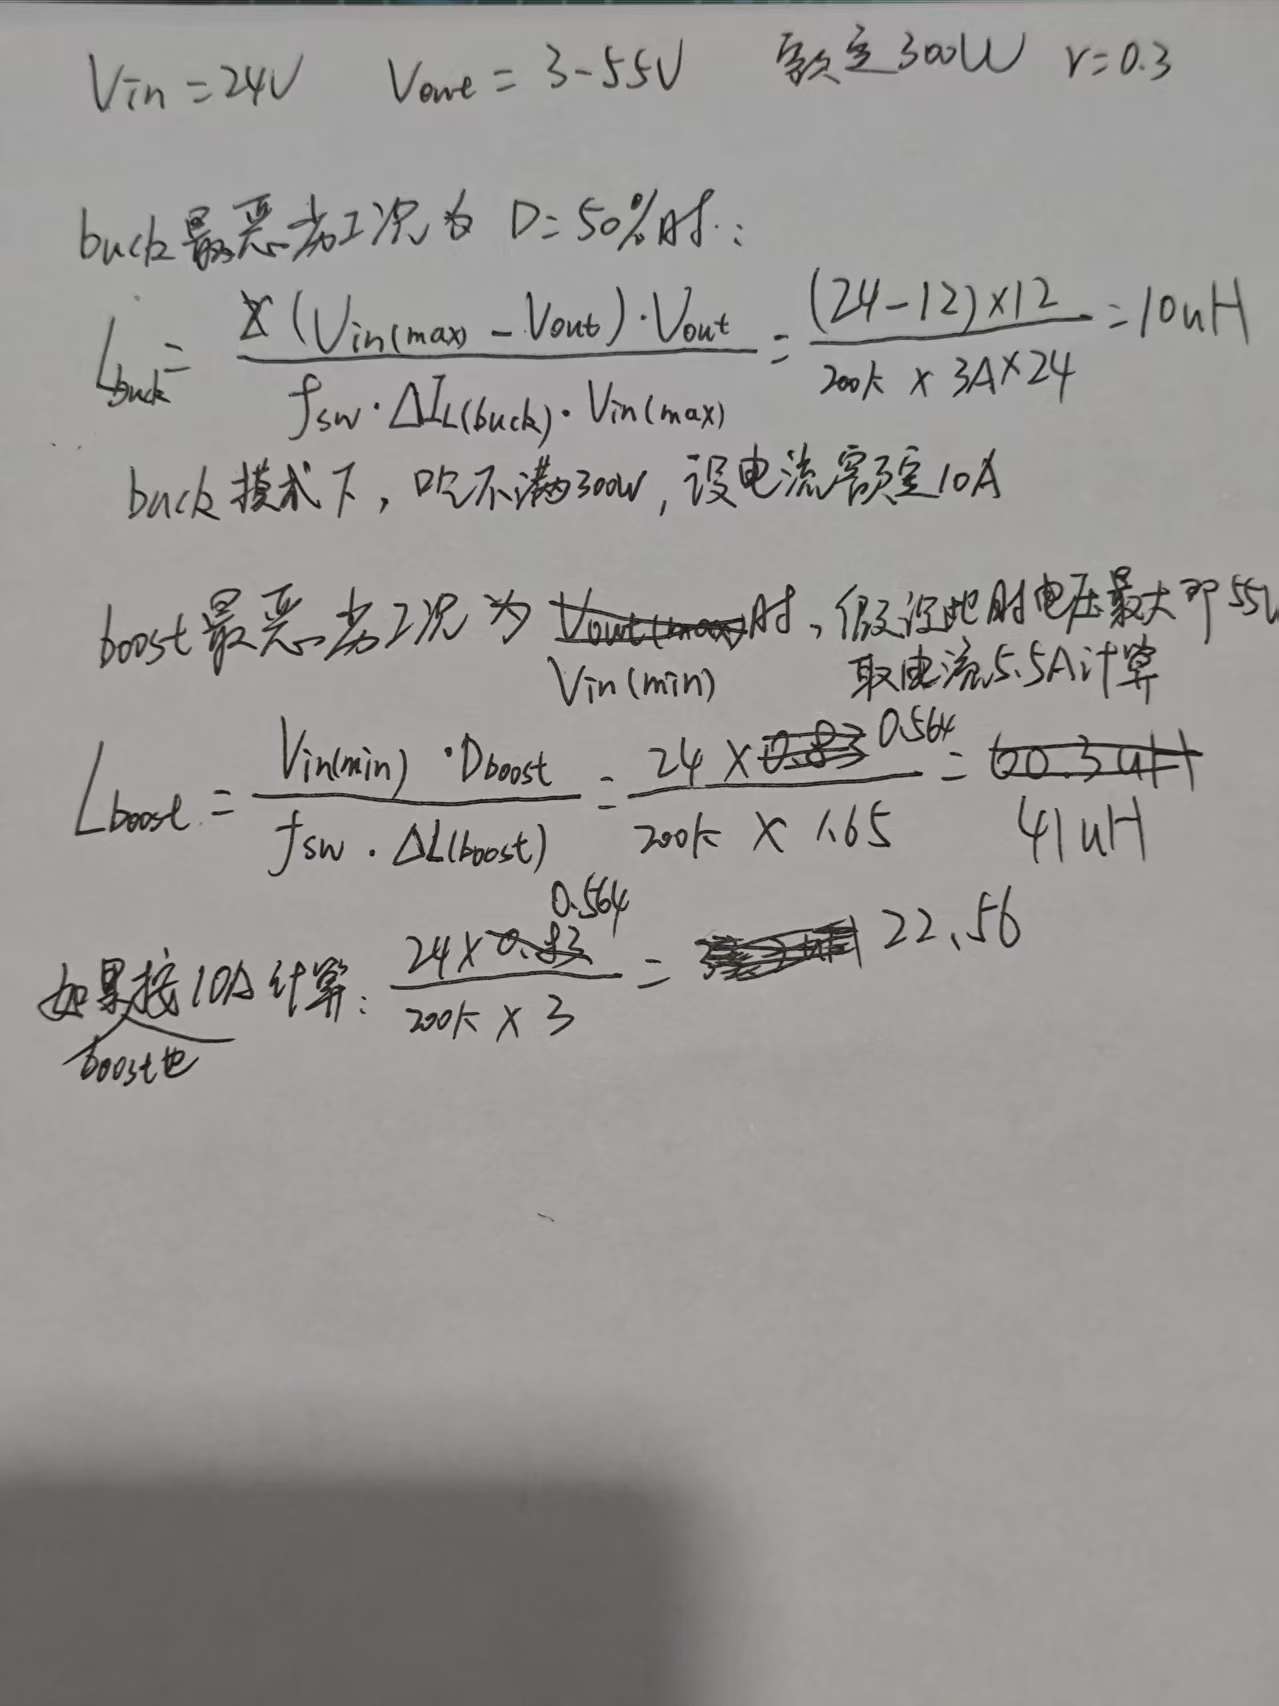 Vin = 24V Vout = 3-55V 额定300W r=0.3
buck最恶劣工况为 D=50%时:
Lbuck = (Vin(max) - Vout)·Vout / fsw·ΔIL(buck)·Vin(max) = (24-12)×12 / 200k × 3A×24 = 10uH
buck模式下,吃不满300W,设电流额定10A
boost最恶劣工况为 Vout(max)时,假设此时电压最大即55V
Vin(min) 取电流5.5A计算
Lboost = Vin(min)·Dboost / fsw·ΔL(boost) = 24×0.83 0.564 / 200k × 1.65 = 60.3uH
41uH
如果按10A计算: 24×0.83 0.564 / 200k × 3 = 22.56
boost也